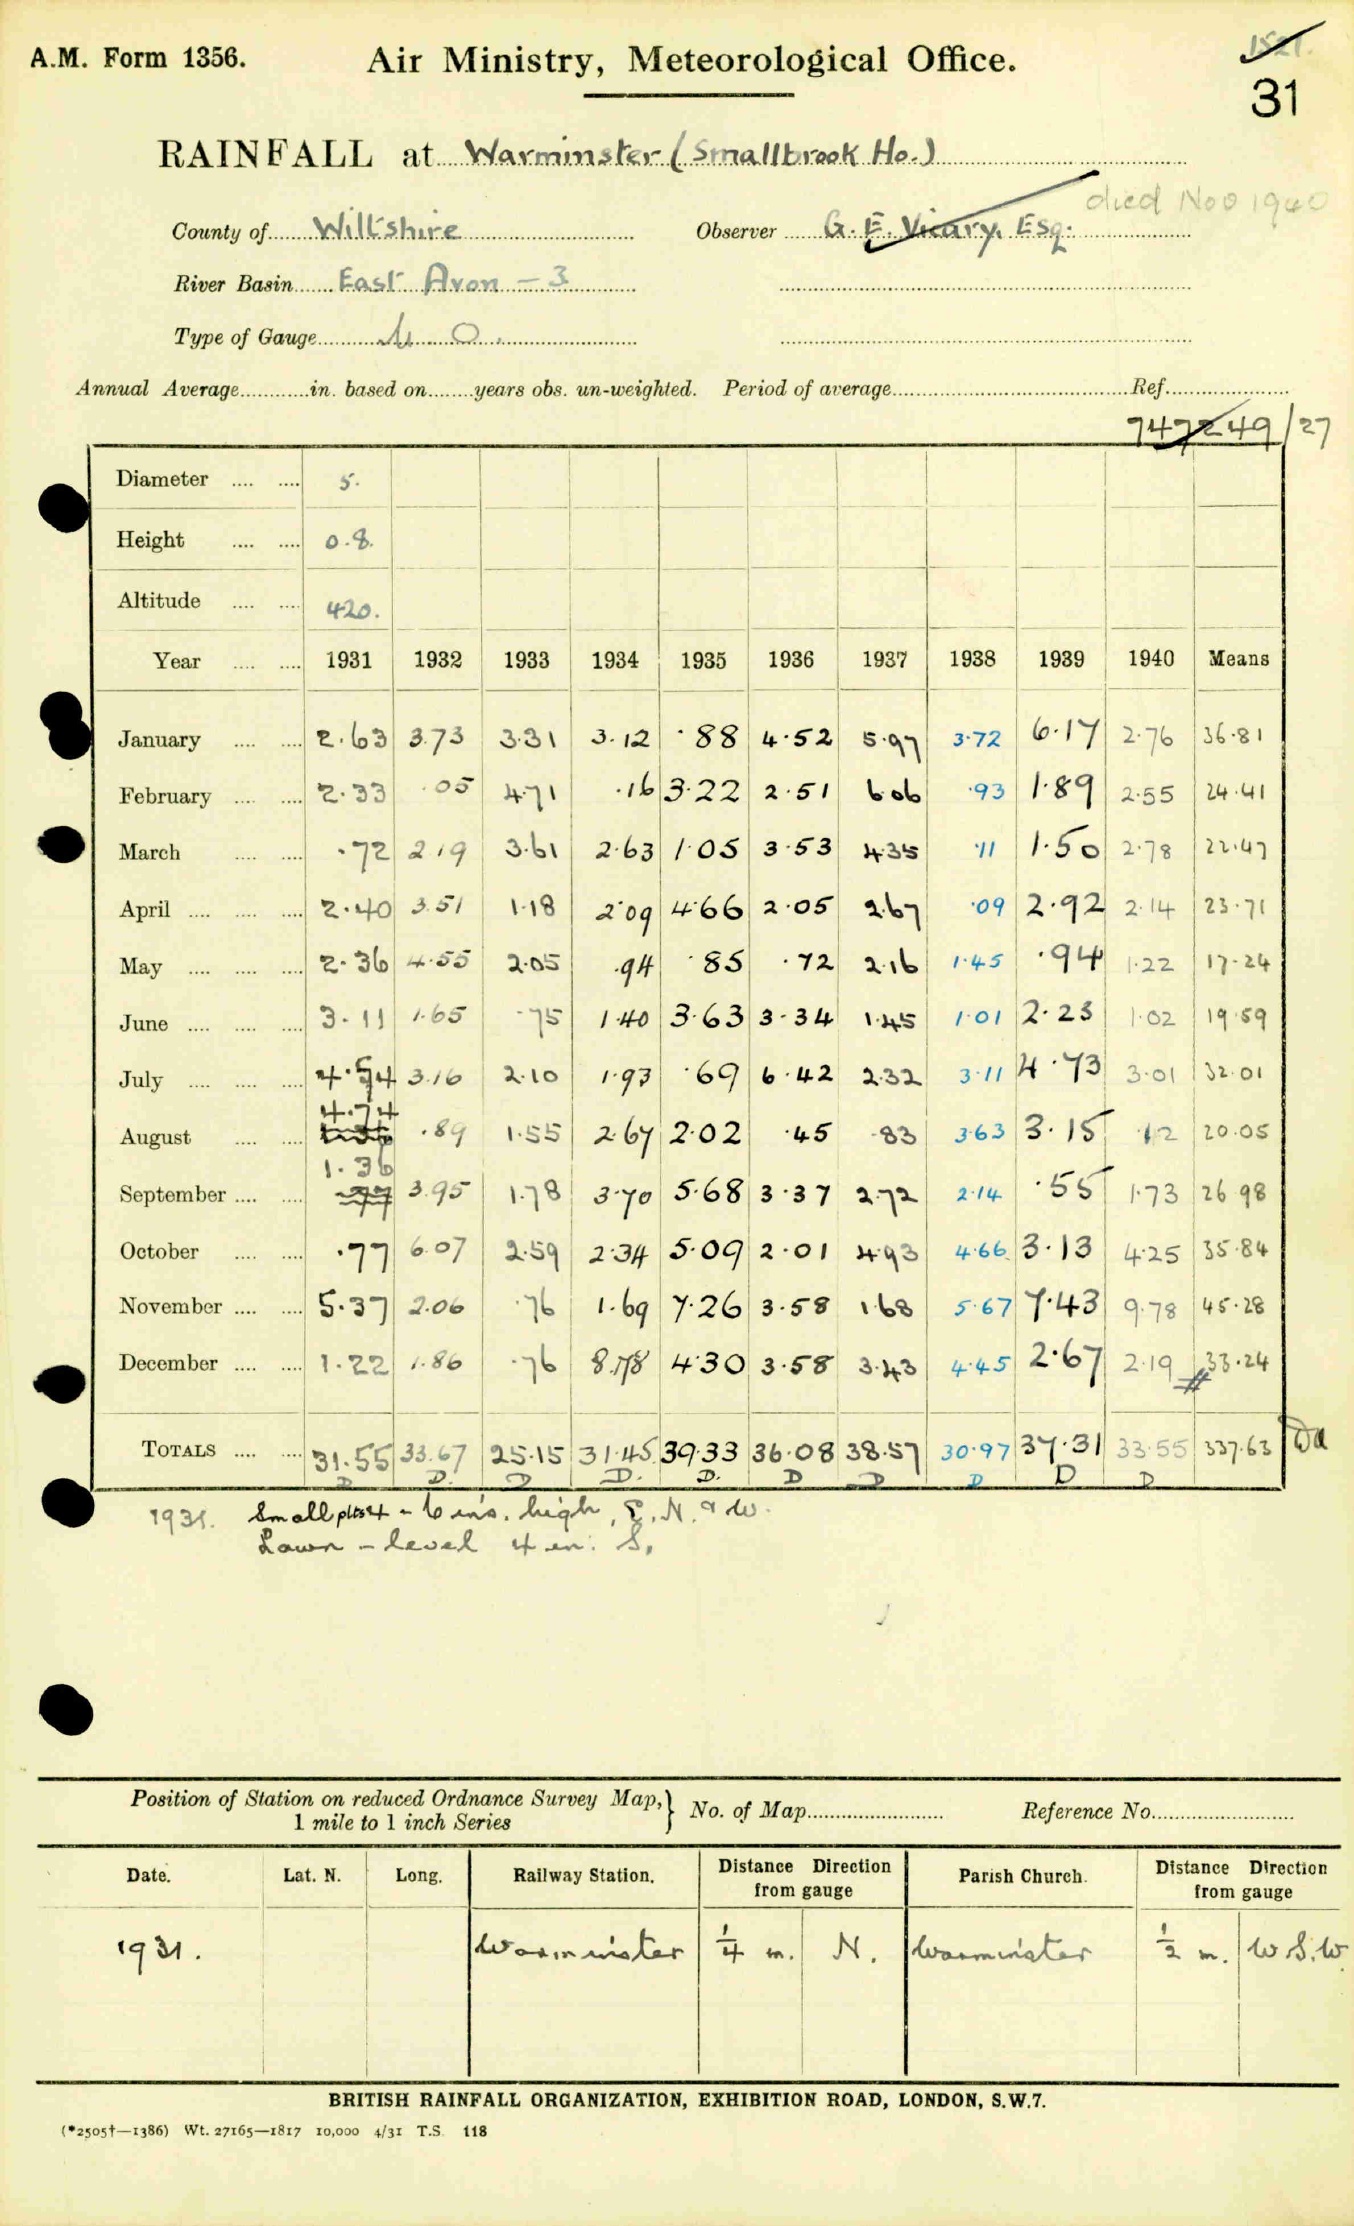 A.M. Form 1356.
Air Ministry, Meteorological Office.
1521.
31
RAINFALL at Warminster (Smallbrook Ho.)
died Nov 1940
County of Wiltshire Observer G. E. Vicary, Esq.
River Basin East Avon - 3
Type of Gauge M O.
Annual Average in. based on years obs. un-weighted. Period of average Ref.
747249/27
Diameter 5.
Height 0.8.
Altitude 420.
Year 1931 1932 1933 1934 1935 1936 1937 1938 1939 1940 Means
January 2.63 3.73 3.31 3.12 .88 4.52 5.97 3.72 6.17 2.76 36.81
February 2.33 .05 4.71 .16 3.22 2.51 6.06 .93 1.89 2.55 24.41
March .72 2.19 3.61 2.63 1.05 3.53 4.35 .11 1.50 2.78 22.47
April 2.40 3.51 1.18 2.09 4.66 2.05 2.67 .09 2.92 2.14 23.71
May 2.36 4.55 2.05 .94 .85 .72 2.16 1.45 .94 1.22 17.24
June 3.11 1.65 .75 1.40 3.63 3.34 1.45 1.01 2.23 1.02 19.59
July 4.54 3.16 2.10 1.93 .69 6.42 2.32 3.11 4.73 3.01 32.01
August 4.74 .89 1.55 2.67 2.02 .45 .83 3.63 3.15 .12 20.05
September 1.36 3.95 1.78 3.70 5.68 3.37 2.72 2.14 .55 1.73 26.98
October .77 6.07 2.59 2.34 5.09 2.01 4.93 4.66 3.13 4.25 35.84
November 5.37 2.06 .76 1.69 7.26 3.58 1.68 5.67 7.43 9.78 45.28
December 1.22 1.86 .76 8.78 4.30 3.58 3.43 4.45 2.67 2.19 33.24
TOTALS 31.55 33.67 25.15 31.45 39.33 36.08 38.57 30.97 37.31 33.55 337.63
D D. D D. D. D D D D D
1931. Small plant - 6 ins. high, E. N. & W.
Lawn - level 4 in. S.
Position of Station on reduced Ordnance Survey Map, 1 mile to 1 inch Series No. of Map Reference No.
Date. Lat. N. Long. Railway Station. Distance Direction from gauge Parish Church. Distance Direction from gauge
1931. Warminster 1/4 m. N. Warminster 1/2 m. W S.W.
BRITISH RAINFALL ORGANIZATION, EXHIBITION ROAD, LONDON, S.W.7.
(*2505†—1386) Wt. 27165—1817 10,000 4/31 T.S. 118